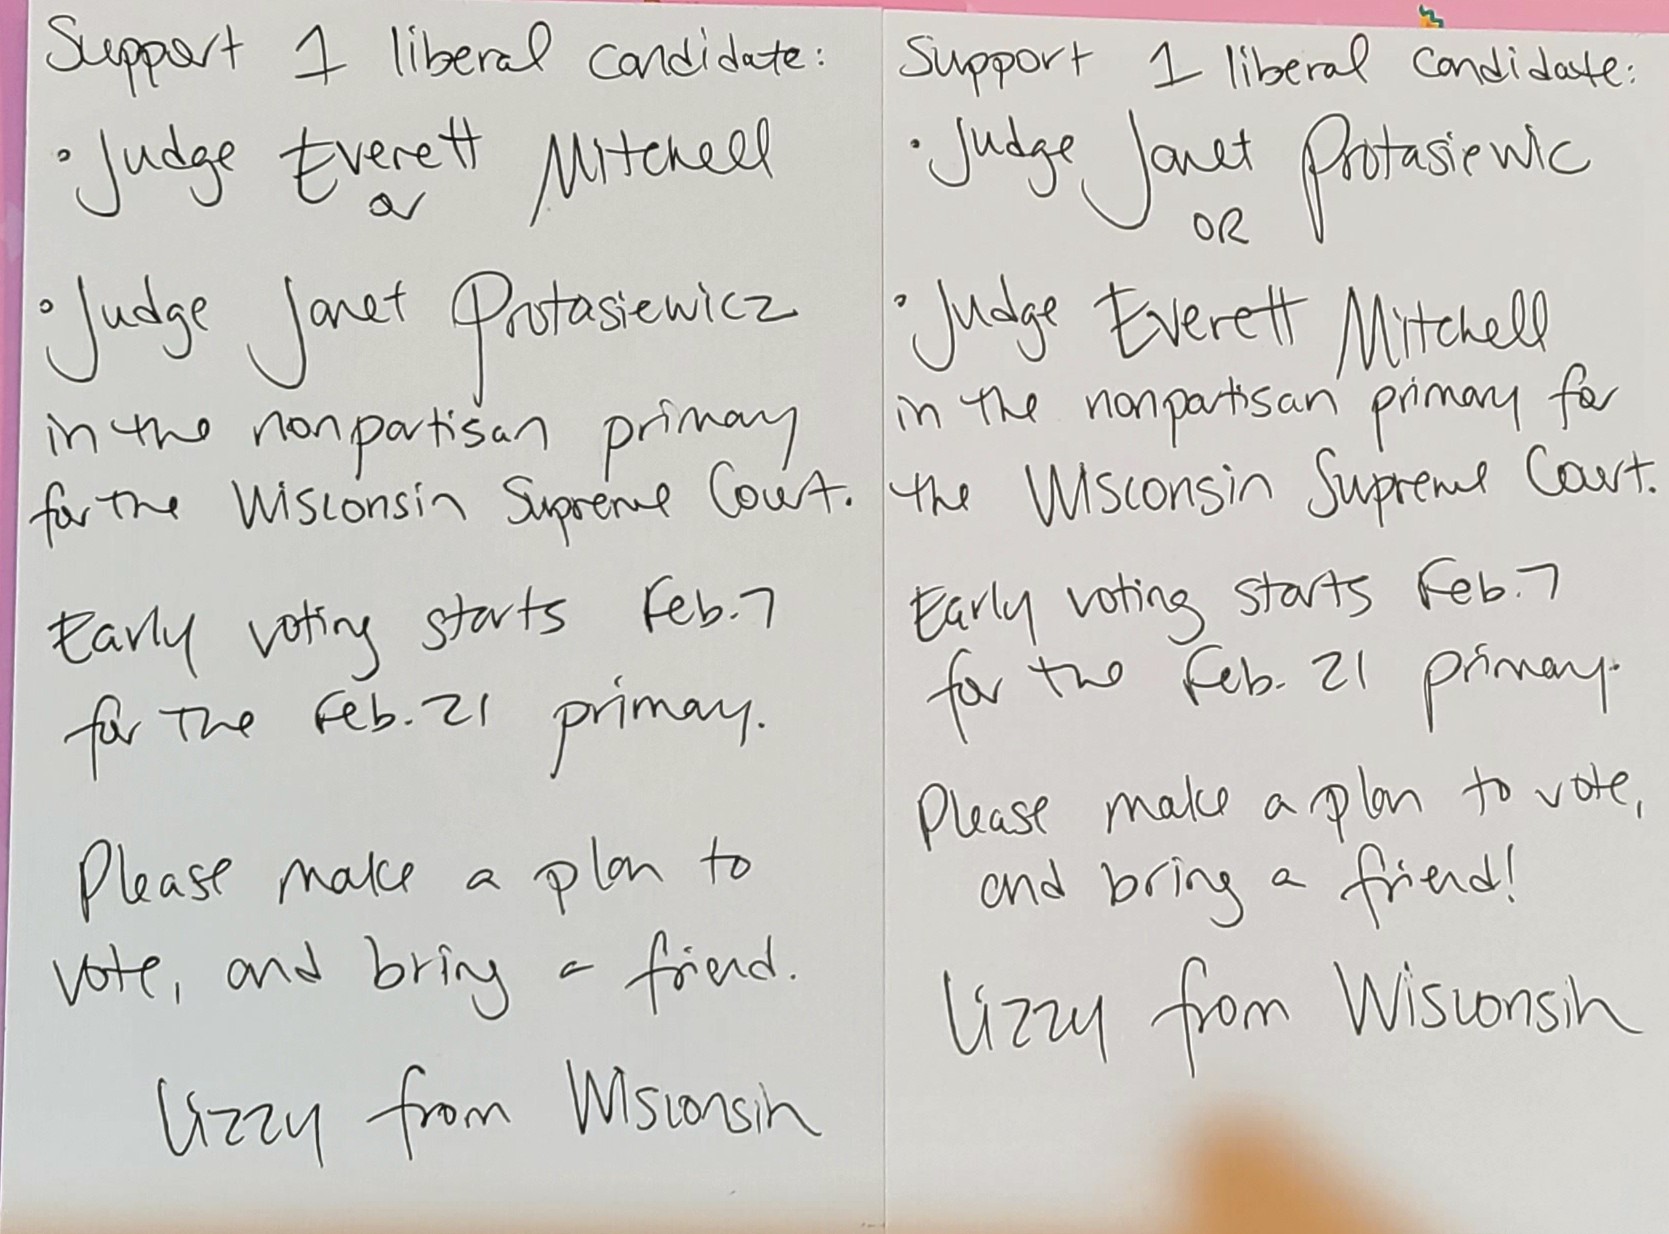 Support 1 liberal candidate:
• Judge Everett Mitchell
or
• Judge Janet Protasiewicz
in the nonpartisan primary
for the Wisconsin Supreme Court.
Early voting starts Feb. 7
for the Feb. 21 primary.
Please make a plan to
vote, and bring a friend.
Lizzy from Wisconsin
Support 1 liberal candidate:
• Judge Janet Protasiewic
OR
• Judge Everett Mitchell
in the nonpartisan primary for
the Wisconsin Supreme Court.
Early voting starts Feb. 7
for the Feb. 21 primary.
Please make a plan to vote,
and bring a friend!
Lizzy from Wisconsin